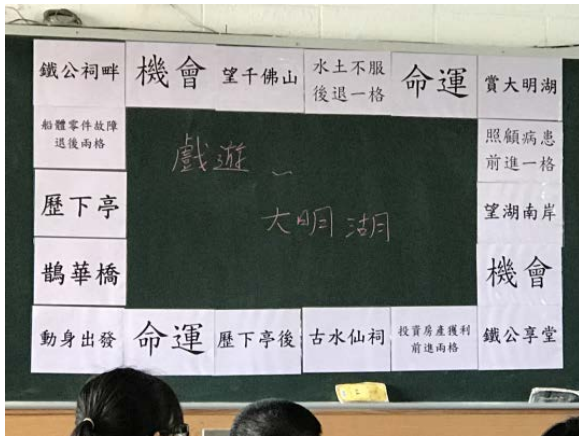 鐵公祠畔
機會
望千佛山
水土不服
後退一格
命運
賞大明湖
船體零件故障
退後兩格
照顧病患
前進一格
戲遊
大明湖
歷下亭
望湖南岸
鵲華橋
機會
動身出發
命運
歷下亭後
古水仙祠
投資房產獲利
前進兩格
鐵公享堂